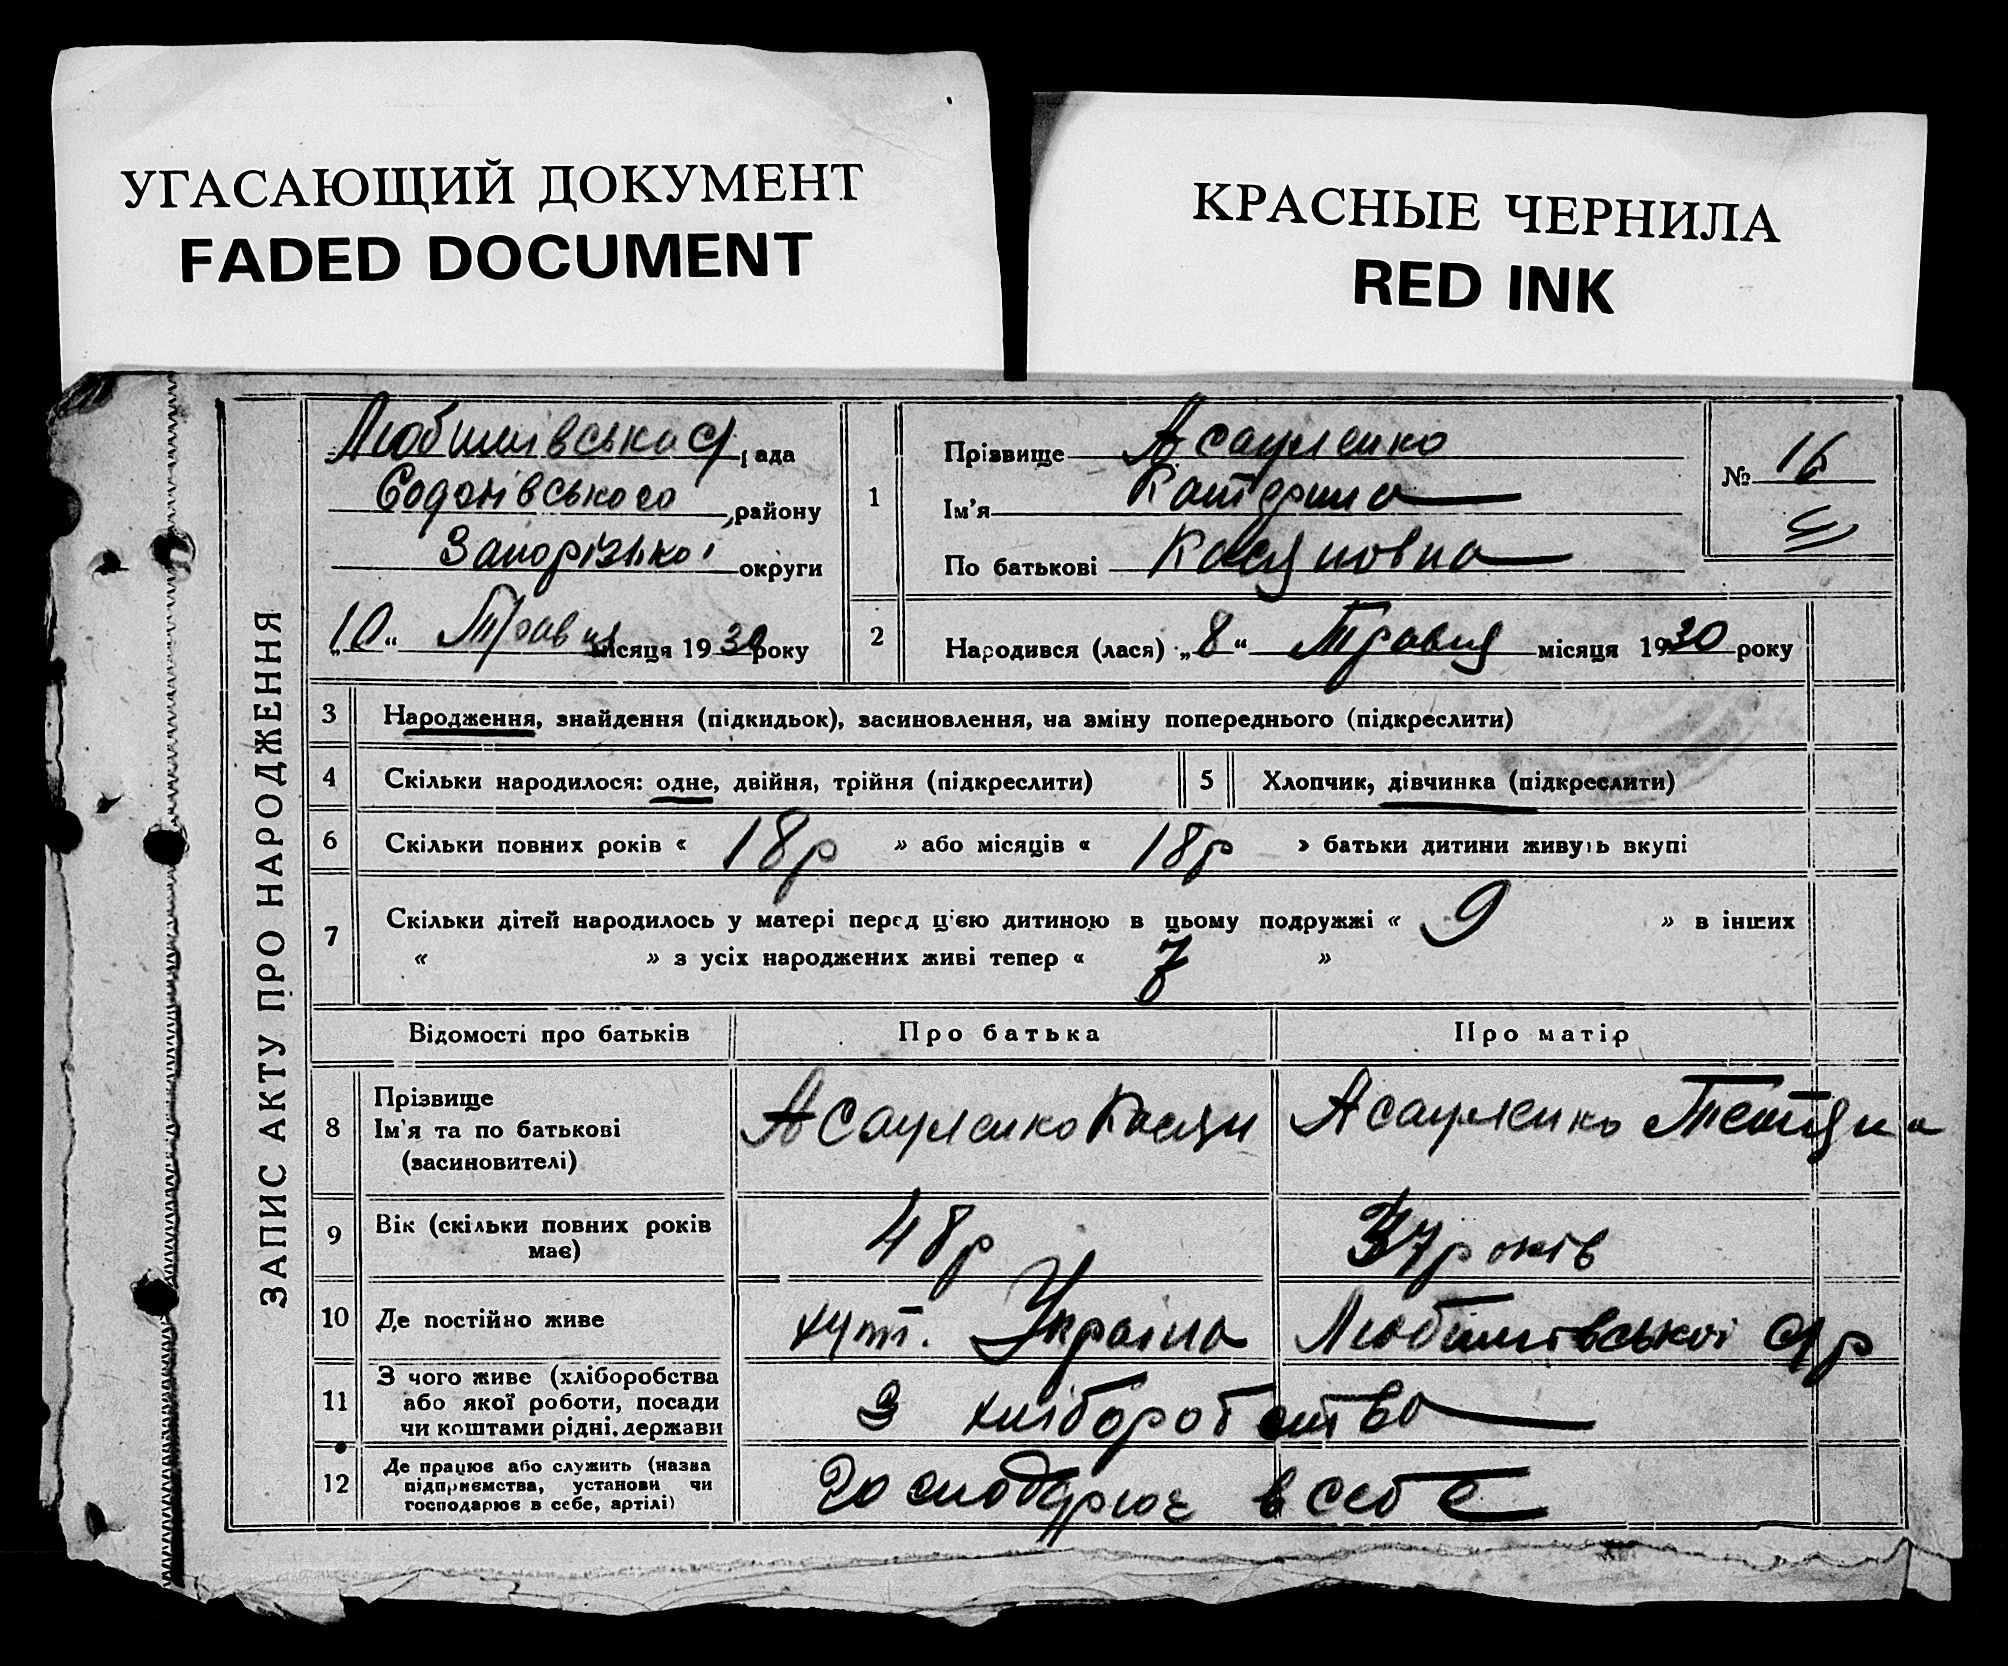 УГАСАЮЩИЙ ДОКУМЕНТ
FADED DOCUMENT
КРАСНЫЕ ЧЕРНИЛА
RED INK
ЗАПИС АКТУ ПРО НАРОДЖЕННЯ
Любимівська с/рада
району
Запорізької округи
„10“ Травня місяця 1930 року
1
Прізвище Асауленко
Ім'я Катерина
По батькові Касяновна
№ 16
2
Народився (лася) „8“ Травня місяця 1930 року
3 Народження, знайдення (підкидьок), засиновлення, на зміну попереднього (підкреслити)
4 Скільки народилося: одне, двійня, трійня (підкреслити)
5 Хлопчик, дівчинка (підкреслити)
6 Скільки повних років « 18р » або місяців « 18р » батьки дитини живуть вкупі
7 Скільки дітей народилось у матері перед цією дитиною в цьому подружжі « 9 » в інших
« » з усіх народжених живі тепер « 7 »
Відомості про батьків Про батька Про матір
8 Прізвище
Ім'я та по батькові
(засиновителі)
Асауленко Касян Асауленко Тетяна
9 Вік (скільки повних років
має)
48р 37 років
10 Де постійно живе хут. Україна Любимівської с/р
11 З чого живе (хліборобства
або якої роботи, посади
чи коштами рідні, держави
З хліборобства
12 Де працює або служить (назва
підприємства, установи чи
господарює в себе, артілі)
Господарює в себе